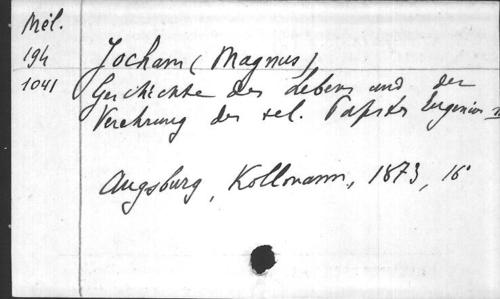 Mél.
194
1041
Jocham (Magnus)
Geschichte des Lebens und der
Verehrung des sel. Papstes Eugenius
Augsburg, Kollmann, 1873, 16°